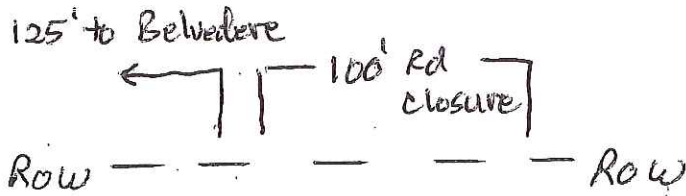 125' to Belvedere
100' Rd
closure
ROW ROW